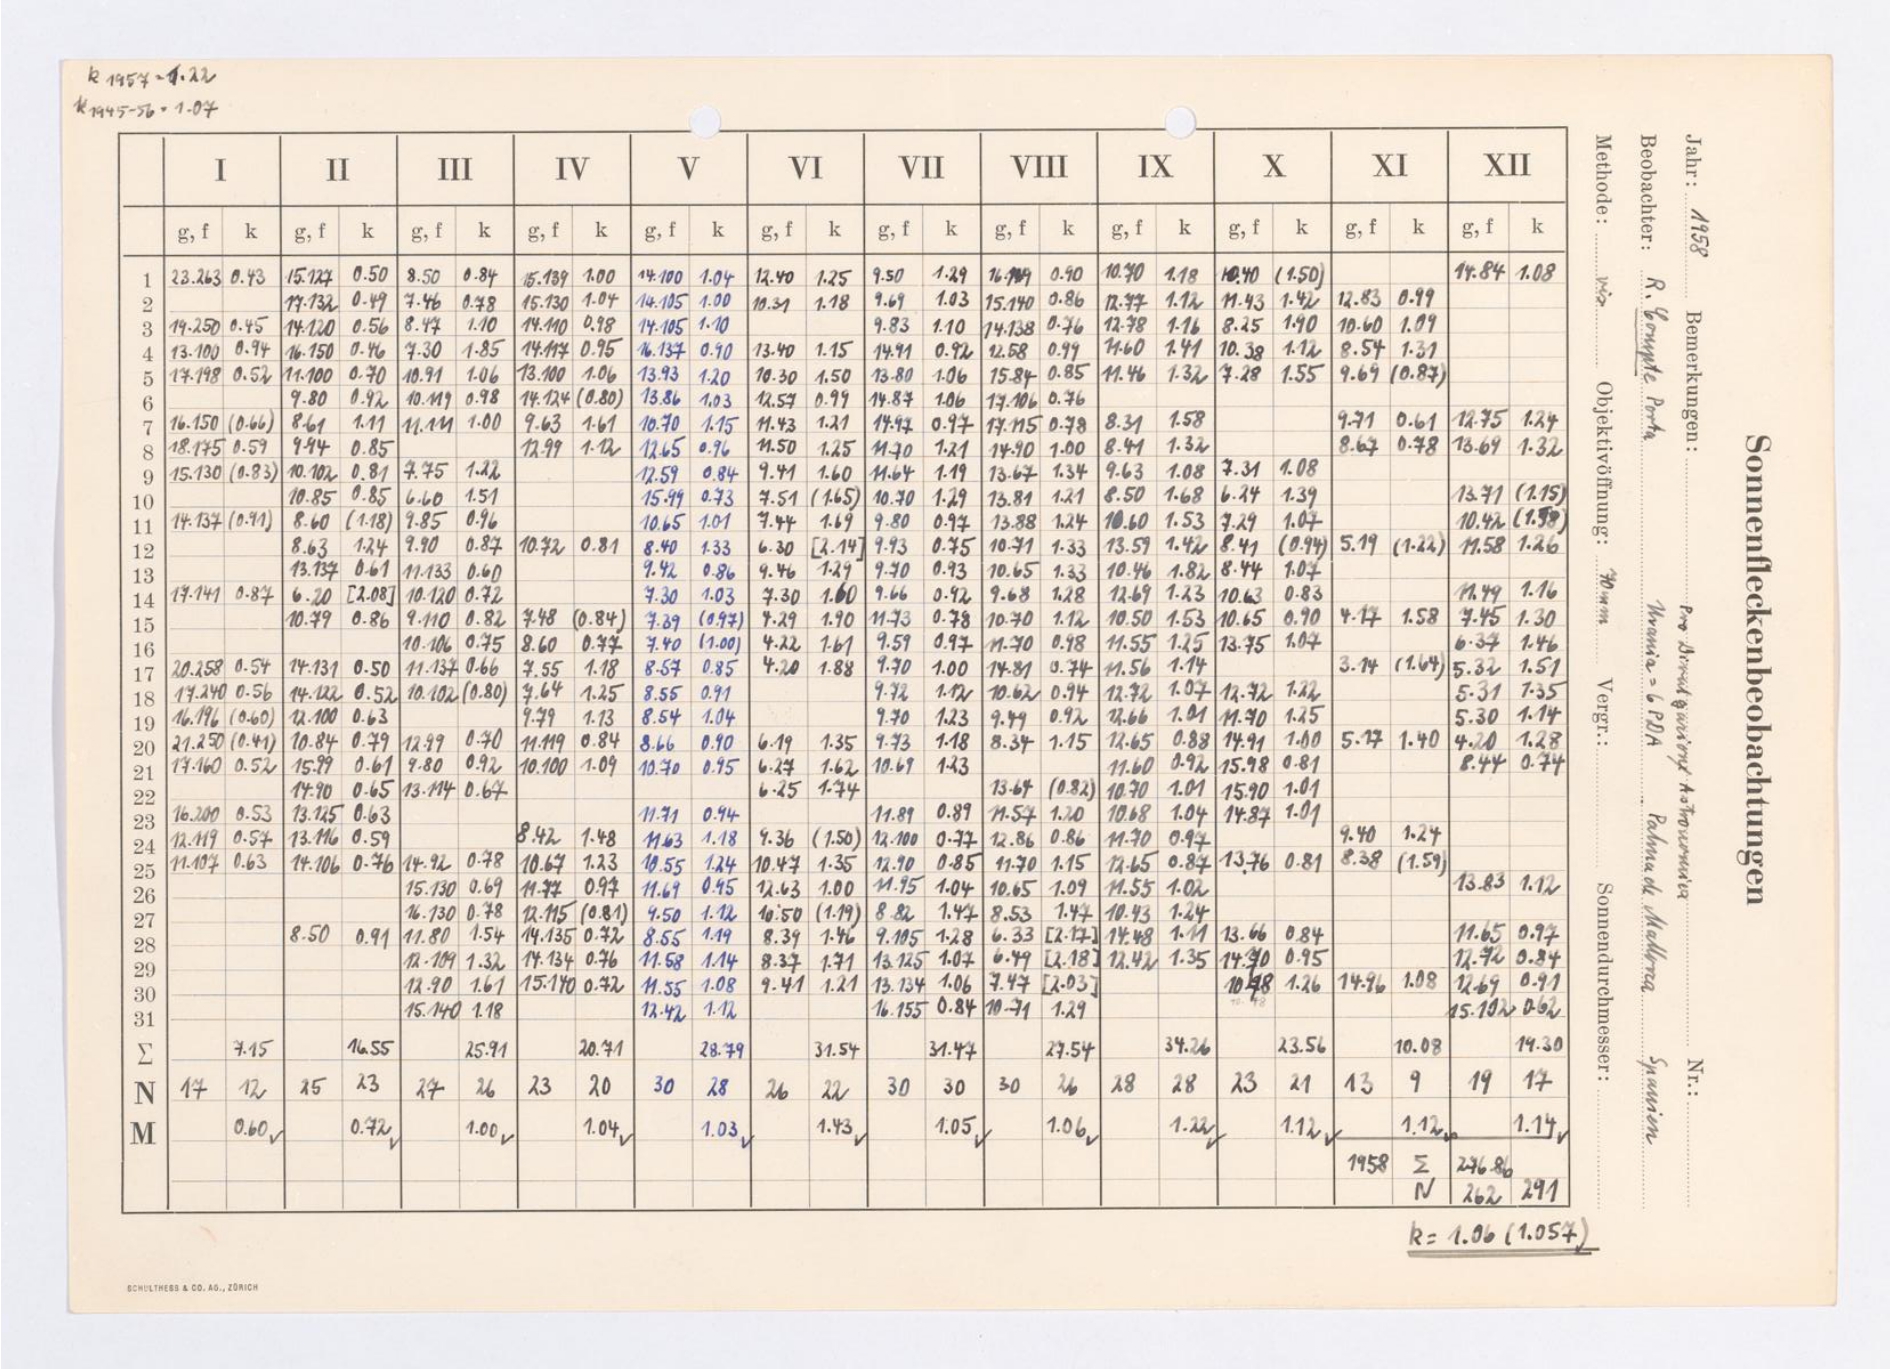 k 1957 = 1.22
k 1945-56 = 1.07
I II III IV V VI VII VIII IX X XI XII
g, f k g, f k g, f k g, f k g, f k g, f k g, f k g, f k g, f k g, f k g, f k g, f k
1 23.263 0.43 15.127 0.50 8.50 0.84 15.139 1.00 14.100 1.04 12.40 1.25 9.50 1.29 0.90 10.70 1.18 10.40 (1.50) 14.84 1.08
2 17.132 0.49 7.46 0.78 15.130 1.04 14.105 1.00 10.31 1.18 9.69 1.03 15.140 0.86 12.77 1.12 11.43 1.42 12.83 0.99
3 19.250 0.45 14.120 0.56 8.47 1.10 14.110 0.98 14.105 1.10 9.83 1.10 14.138 0.76 12.78 1.16 8.25 1.90 10.60 1.09
4 13.100 0.94 16.150 0.46 7.30 1.85 14.117 0.95 16.137 0.90 13.40 1.15 14.91 0.92 12.58 0.99 11.60 1.41 10.38 1.12 8.54 1.31
5 17.198 0.52 11.100 0.70 10.91 1.06 13.100 1.06 13.93 1.20 10.30 1.50 13.80 1.06 15.84 0.85 11.46 1.32 7.28 1.55 9.69 (0.87)
6 9.80 0.92 10.119 0.98 14.124 (0.80) 13.86 1.03 12.57 0.99 14.87 1.06 17.106 0.76
7 16.150 (0.66) 8.61 1.11 11.111 1.00 9.63 1.61 10.70 1.15 11.43 1.21 14.97 0.97 17.115 0.78 8.31 1.58 9.71 0.61 12.75 1.24
8 18.175 0.59 9.94 0.85 12.99 1.12 12.65 0.96 11.50 1.25 11.70 1.21 14.90 1.00 8.41 1.32 8.67 0.78 13.69 1.32
9 15.130 (0.83) 10.102 0.81 7.75 1.22 12.59 0.84 9.41 1.60 11.64 1.19 13.67 1.34 9.63 1.08 7.31 1.08
10 10.85 0.85 6.60 1.51 15.99 0.73 7.51 (1.65) 10.70 1.29 13.81 1.21 8.50 1.68 6.24 1.39 13.71 (1.15)
11 14.137 (0.91) 8.60 (1.18) 9.85 0.96 10.65 1.01 7.44 1.69 9.80 0.97 13.88 1.24 10.60 1.53 7.29 1.07 10.42
12 8.63 1.24 9.90 0.87 10.72 0.81 8.40 1.33 6.30 [2.14] 9.93 0.75 10.71 1.33 13.59 1.42 8.41 (0.94) 5.19 (1.22) 11.58 1.26
13 13.137 0.61 11.133 0.60 9.42 0.86 9.46 1.29 9.70 0.93 10.65 1.33 10.46 1.82 8.44 1.07
14 17.141 0.87 6.20 [2.08] 10.120 0.72 7.30 1.03 7.30 1.60 9.66 0.92 9.68 1.28 12.69 1.23 10.63 0.83 11.49 1.16
15 10.79 0.86 9.110 0.82 7.48 (0.84) 7.39 (0.97) 4.29 1.90 11.73 0.78 10.70 1.12 10.50 1.53 10.65 0.90 4.17 1.58 7.45 1.30
16 10.106 0.75 8.60 0.77 7.40 (1.00) 4.22 1.61 9.59 0.97 11.70 0.98 11.55 1.25 13.75 1.07 6.37 1.46
17 20.258 0.54 14.131 0.50 11.137 0.66 7.55 1.18 8.57 0.85 4.20 1.88 9.70 1.00 14.81 0.74 11.56 1.14 3.14 (1.64) 5.32 1.51
18 17.240 0.56 14.122 0.52 10.102 (0.80) 7.64 1.25 8.55 0.91 9.72 1.12 10.62 0.94 12.72 1.07 12.72 1.22 5.31 1.35
19 16.196 (0.60) 12.100 0.63 9.79 1.13 8.54 1.04 9.70 1.23 9.49 0.92 12.66 1.01 11.70 1.25 5.30 1.14
20 21.250 (0.41) 10.84 0.79 12.99 0.70 11.119 0.84 8.66 0.90 6.19 1.35 9.73 1.18 8.34 1.15 12.65 0.88 14.91 1.00 5.17 1.40 4.20 1.28
21 17.160 0.52 15.99 0.61 9.80 0.92 10.100 1.09 10.70 0.95 6.27 1.62 10.69 1.23 11.60 0.92 15.98 0.81 8.44 0.74
22 14.90 0.65 13.114 0.67 6.25 1.74 13.64 (0.82) 10.70 1.01 15.90 1.01
23 16.200 0.53 13.125 0.63 11.71 0.94 11.89 0.89 11.57 1.20 10.68 1.04 14.87 1.01
24 12.119 0.57 13.116 0.59 8.42 1.48 11.63 1.18 9.36 (1.50) 12.100 0.77 12.86 0.86 11.70 0.97 9.40 1.24
25 11.107 0.63 14.106 0.76 14.92 0.78 10.67 1.23 10.55 1.24 10.47 1.35 12.90 0.85 11.70 1.15 12.65 0.87 13.76 0.81 8.38 (1.59)
26 15.130 0.69 11.77 0.97 11.69 0.95 12.63 1.00 11.95 1.04 10.65 1.09 11.55 1.02 13.83 1.12
27 16.130 0.78 12.115 (0.81) 9.50 1.12 10.50 (1.19) 8.82 1.47 8.53 1.47 10.43 1.24
28 8.50 0.91 11.80 1.54 14.135 0.72 8.55 1.19 8.39 1.46 9.105 1.28 6.33 [2.17] 14.48 1.11 13.66 0.84 11.65 0.97
29 12.109 1.32 14.134 0.76 11.58 1.14 8.37 1.71 13.125 1.07 6.49 [2.18] 12.42 1.35 14.90 0.95 12.72 0.84
30 12.90 1.61 15.140 0.72 11.55 1.08 9.41 1.21 13.134 1.06 7.47 [2.03] 1.26 14.96 1.08 12.69 0.91
31 15.140 1.18 12.42 1.12 16.155 0.84 10.71 1.29 15.102 0.62
Σ 7.15 16.55 25.91 20.71 28.79 31.54 31.47 27.54 34.26 23.56 10.08 19.30
N 17 12 25 23 27 26 23 20 30 28 26 22 30 30 30 26 28 28 23 21 13 9 19 17
M 0.60 0.72 1.00 1.04 1.03 1.43 1.05 1.06 1.22 1.12 1.12 1.14
1958 Σ 276.86
N 262 291
k = 1.06 (1.057)
SCHULTHESS & CO. AG., ZÜRICH
Sonnenfleckenbeobachtungen
Jahr: 1958 Bemerkungen: Nr.:
Beobachter: R. Compte Porta Urania = 6 PDA Palma de Mallorca Spanien
Methode: vis Objektivöffnung: 70mm Vergr.: Sonnendurchmesser: